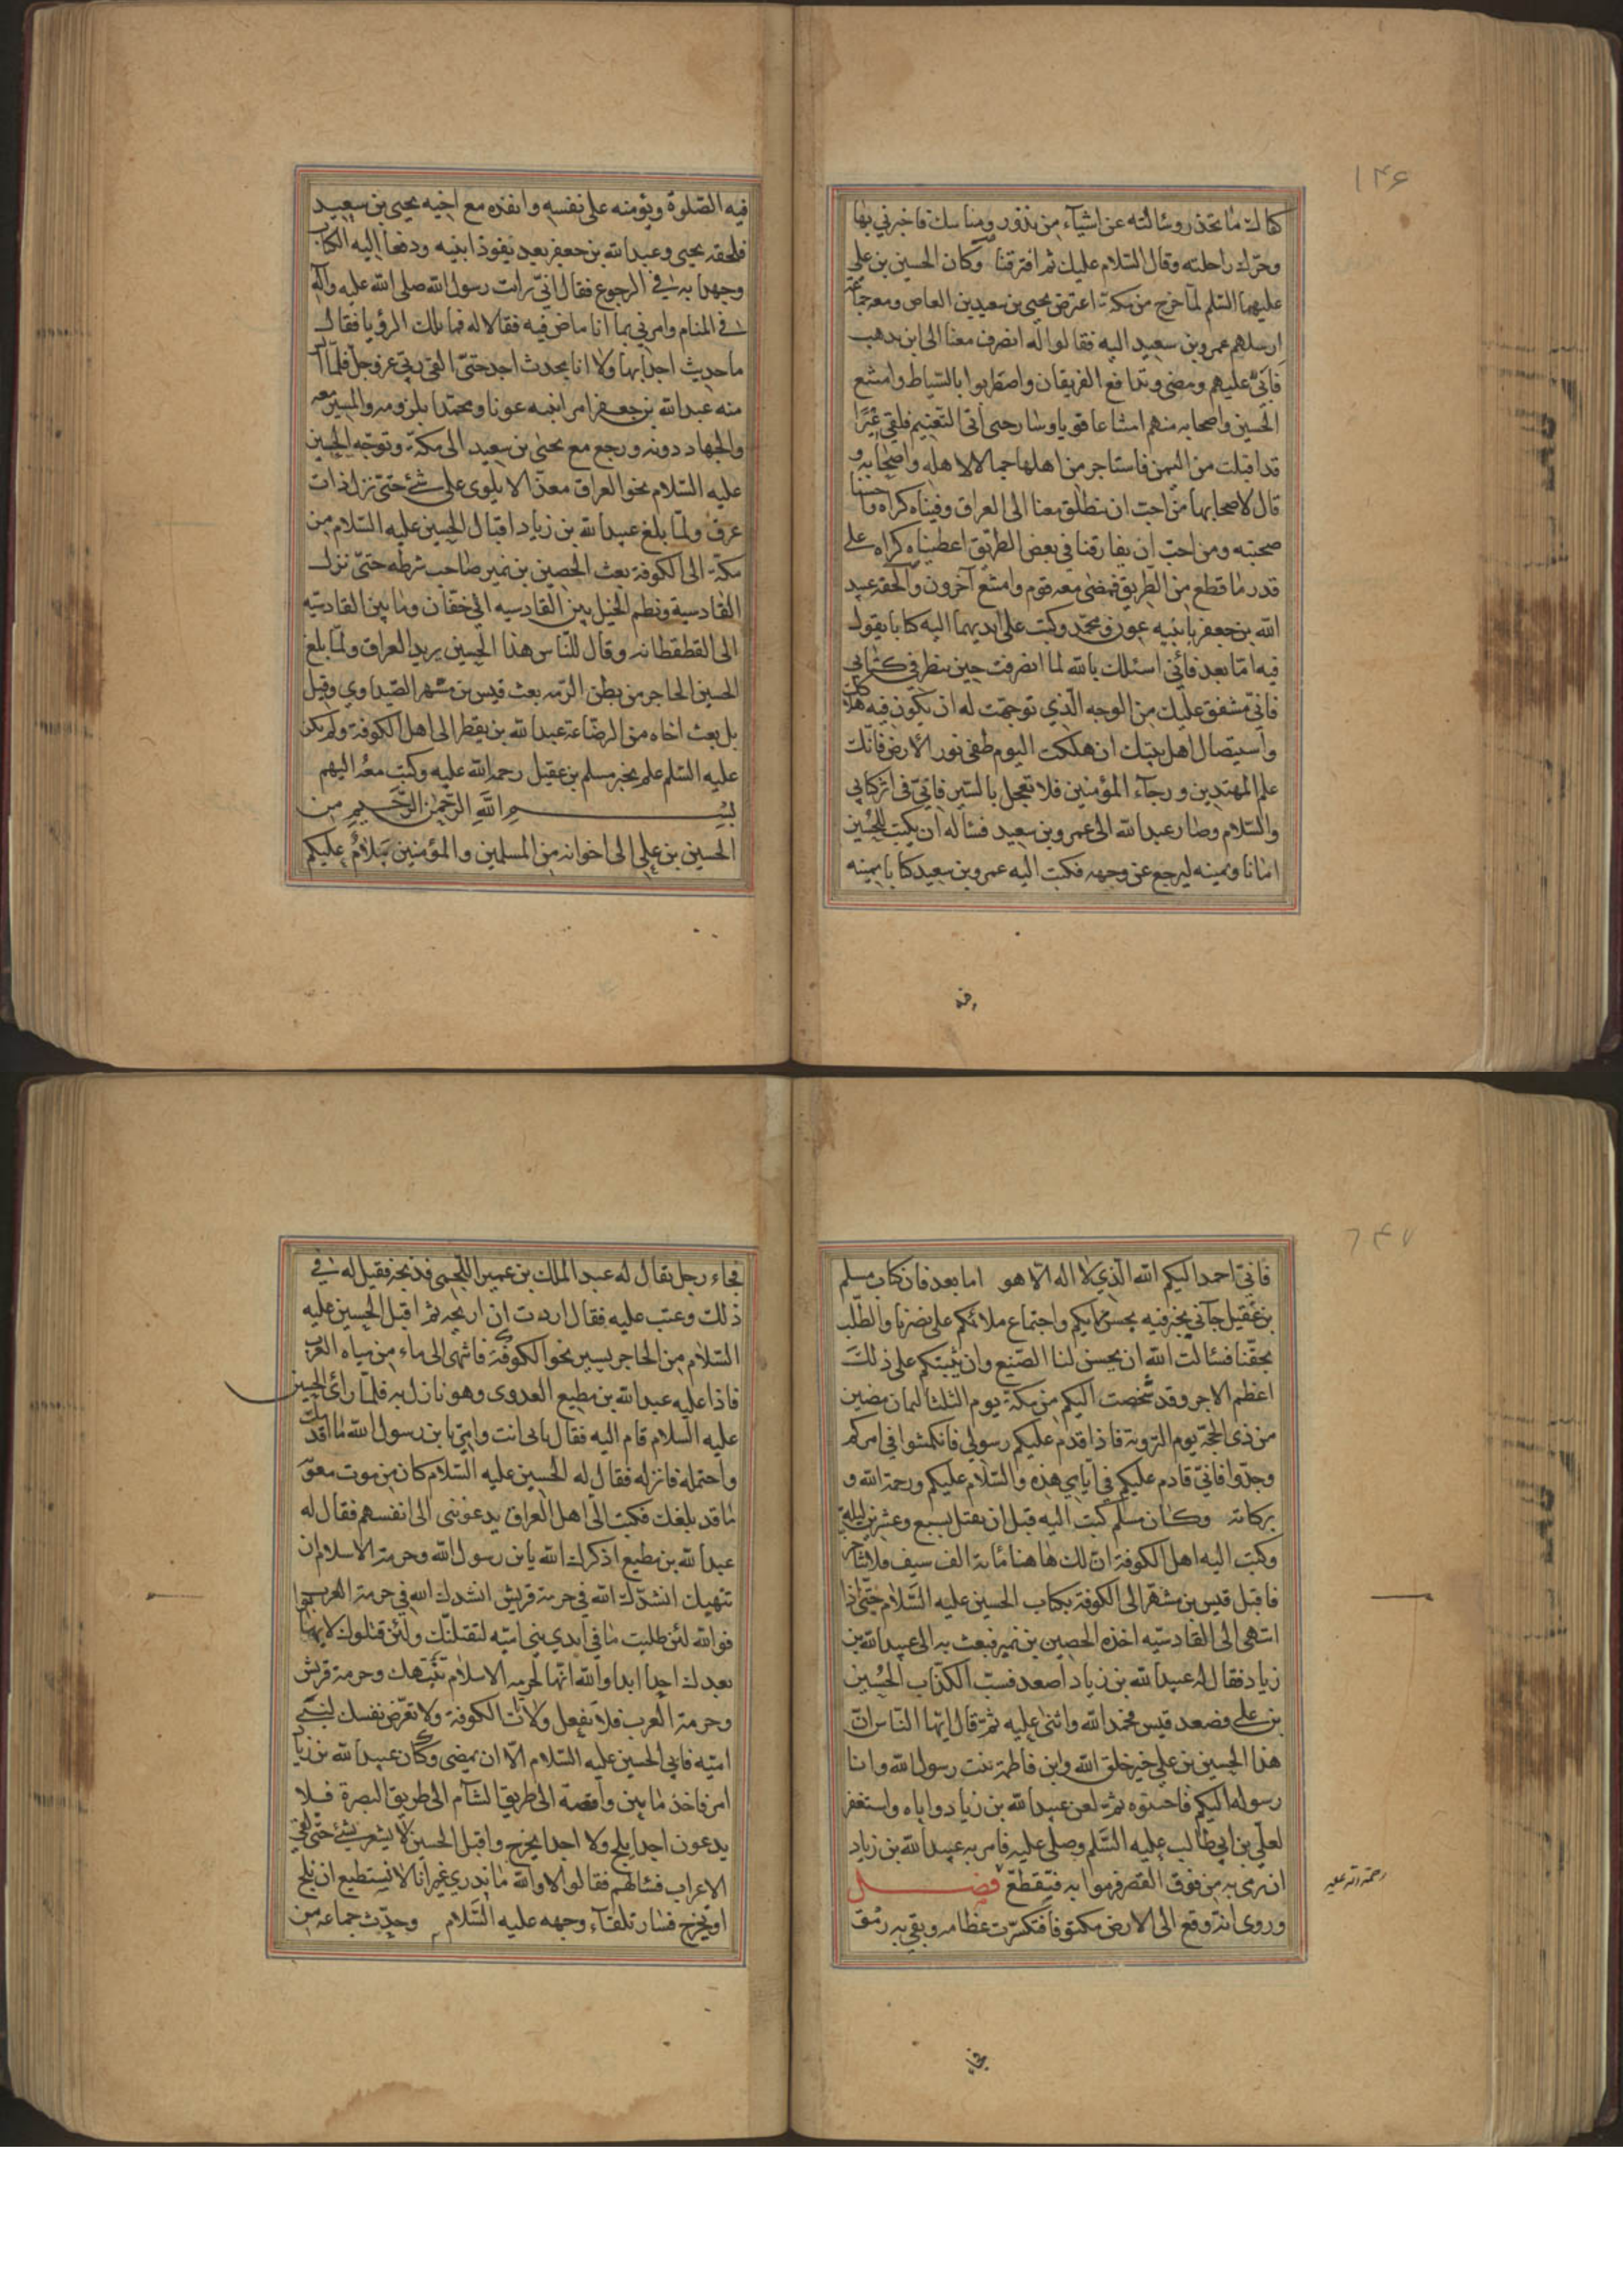 ۱۴۶
كفاك ما تحذر وسالته عن اشياء من نذور ومناسك فاخبرني بها
وحرّك راحلته وقال السّلام عليك ثم افترقنا وكان الحسين بن علي
عليهما السّلم لمّا خرج من مكة اعترضه يحيى بن سعيد بن العاص ومعه جماعة
ارسلهم عمرو بن سعيد اليه فقالوا له انصرف معنا الى اين تذهب
فابى عليهم ومضى وتدافع الفريقان واضطربوا بالسّياط وامتنع
الحسين واصحابه منهم امتناعا قويا وسار حتى اتى التّنعيم فلقي عيرًا
قد اقبلت من اليمن فاستاجر من اهلها جمالا لاهله واصحابه و
قال لاصحابها من احبّ ان ينطلق معنا الى العراق وفيناه كراه واحسنا
صحبته ومن احبّ ان يفارقنا في بعض الطريق اعطيناه كراه على
قدر ما قطع من الطريق فمضى معه قوم وامتنع آخرون والحقه عبد
الله بن جعفر بابنيه عون ومحمّد وكتب على ايديهما اليه كتابا يقول
فيه امّا بعد فانّي اسئلك بالله لما انصرفت حين تنظر في كتابي
فانّي مشفق عليك من الوجه الّذي توجهت له ان يكون فيه هلاكك
واستيصال اهل بيتك ان هلكت اليوم طفى نور الارض فانّك
علم المهتدين ورجآء المؤمنين فلا تعجل بالسّير فانّي في اثر كتابي
والسّلام وصار عبد الله الى عمرو بن سعيد فساله ان يكتب للحسين
امانا ويمنيه ليرجع عن وجهه فكتب اليه عمرو بن سعيد كتابا يمنيه
فيه
فيه الصّلوة ويؤمنه على نفسه وانفذه مع اخيه يحيى بن سعيد
فلحقه يحيى وعبد الله بن جعفر بعد نفوذ ابنيه ودفعا اليه الكتاب
وجهدا به في الرجوع فقال انّي رايت رسول الله صلى الله عليه وآله
في المنام وامرني بما انا ماض فيه فقالا له فما تلك الرؤيا فقال
ما حدثت احدا بها ولا انا محدث احد حتّى القى ربّي عز وجل فلمّا ايس
منه عبد الله بن جعفر امر ابنيه عونا ومحمّدا بلزومه والمسير معه
والجهاد دونه ورجع مع يحيى بن سعيد الى مكة وتوجّه الحسين
عليه السّلام نحو العراق معذّا لا يلوى على شئ حتّى نزل ذات
عرق ولمّا بلغ عبيد الله بن زياد اقبال الحسين عليه السّلام من
مكة الى الكوفة بعث الحصين بن نمير صاحب شرطه حتّى نزل
القادسية ونظم الخيل بين القادسيه الى خفّان وما بين القادسيّه
الى القطقطانه وقال للنّاس هذا الحسين يريد العراق ولمّا بلغ
الحسين الحاجر من بطن الرّمه بعث قيس بن مسهر الصّيداوي وقيل
بل بعث اخاه من الرضاعة عبد الله بن يقطر الى اهل الكوفة ولم يكن
عليه السّلم علم بخبر مسلم بن عقيل رحمه الله عليه وكتب معه اليهم
بسم الله الرّحمن الرّحيم من
الحسين بن علي الى اخوانه من المسلمين والمؤمنين سلام عليكم
۱۴۷
فانّي احمد اليكم الله الّذي لا اله الّا هو اما بعد فان كتاب مسلم
بن عقيل جآنى يخبر فيه بحسن رأيكم واجتماع ملائكم على نصرنا والطّلب
بحقّنا فسالت الله ان يحسن لنا الصّنيع وان يثيبكم على ذلك
اعظم الاجر وقد شخصت اليكم من مكة يوم الثلثا لثمان مضين
من ذى الحجّة يوم التّروية فاذا قدم عليكم رسولي فانكمشوا في امركم
وجدّوا فانّي قادم عليكم في ايامي هذه والسّلام عليكم ورحمة الله و
بركاته وكان مسلم كتب اليه قبل ان يقتل بسبع وعشرين ليلة
وكتب اليه اهل الكوفة انّ لك هاهنا مائة الف سيف فلا تتاخر
فاقبل قيس بن مسهّر الى الكوفة بكتاب الحسين عليه السّلام حتّى اذا
انتهى الى القادسيّه اخذه الحصين بن نمير فبعث به الى عبيد الله بن
زياد فقال له عبيد الله بن زياد اصعد فسبّ الكذّاب الحسين
بن علي فصعد قيس فحمد الله واثنى عليه ثمّ قال ايّها النّاس انّ
هذا الحسين بن علي خير خلق الله وابن فاطمة بنت رسول الله وانا
رسوله اليكم فاجيبوه ثمّ لعن عبيد الله بن زياد واباه واستغفر
لعلّي بن ابي طالب عليه السّلم وصلى عليه فامر به عبيد الله بن زياد
ان يرمى به من فوق القصر فرموا به فتقطّع فصل
رحمة الله عليه
وروى انّه وقع الى الارض مكتوفا فتكسّرت عظامه وبقي به رمق
فجاء
فجاء رجل يقال له عبد الملك بن عمير اللّخمى فذبحه فقيل له في
ذلك وعتب عليه فقال اردت ان اريحه ثم اقبل الحسين عليه
السّلام من الحاجر يسير نحو الكوفة فانتهى الى ماء من مياه العرب
فاذا عليه عبد الله بن مطيع العدوى وهو نازل به فلمّا رأى الحسين
عليه السّلام قام اليه فقال بابى انت وامّي يا بن رسول الله ما اقدمك
واحتمله فانزله فقال له الحسين عليه السّلام كان من موت معويه
ما قد بلغك فكتب الّى اهل العراق يدعوننى الى انفسهم فقال له
عبد الله بن مطيع اذكرك الله يا بن رسول الله وحرمة الاسلام ان
تنهتك انشدّك الله في حرمة قريش انشدك الله في حرمة العرب
فوالله لئن طلبت ما في ايدي بني اميّه ليقتلنّك ولئن قتلوك لا يهابوا
بعدك احدا ابدا والله انّها لحرمه الاسلام تنهتك وحرمة قريش
وحرمة العرب فلا تفعل ولا تات الكوفة ولا تعرّض نفسك لبنى
اميّه فابى الحسين عليه السّلام الّا ان يمضى وكان عبيد الله بن زياد
امر فاخذ ما بين واقصة الى طريق الشّام الى طريق البصرة فلا
يدعون احدا يلج ولا احدا يخرج واقبل الحسين لا يشعر بشئ حتّى لقي
الاعراب فسالهم فقالوا لا والله ما ندري غير انّا لا نستطيع ان نلج
او نخرج فسار تلقآء وجهه عليه السّلام وحدّث جماعة من